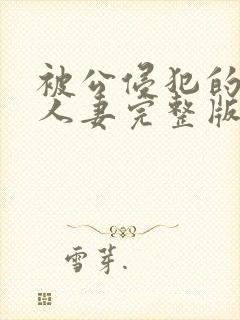 被公侵犯的
人妻完整版
雪芽.